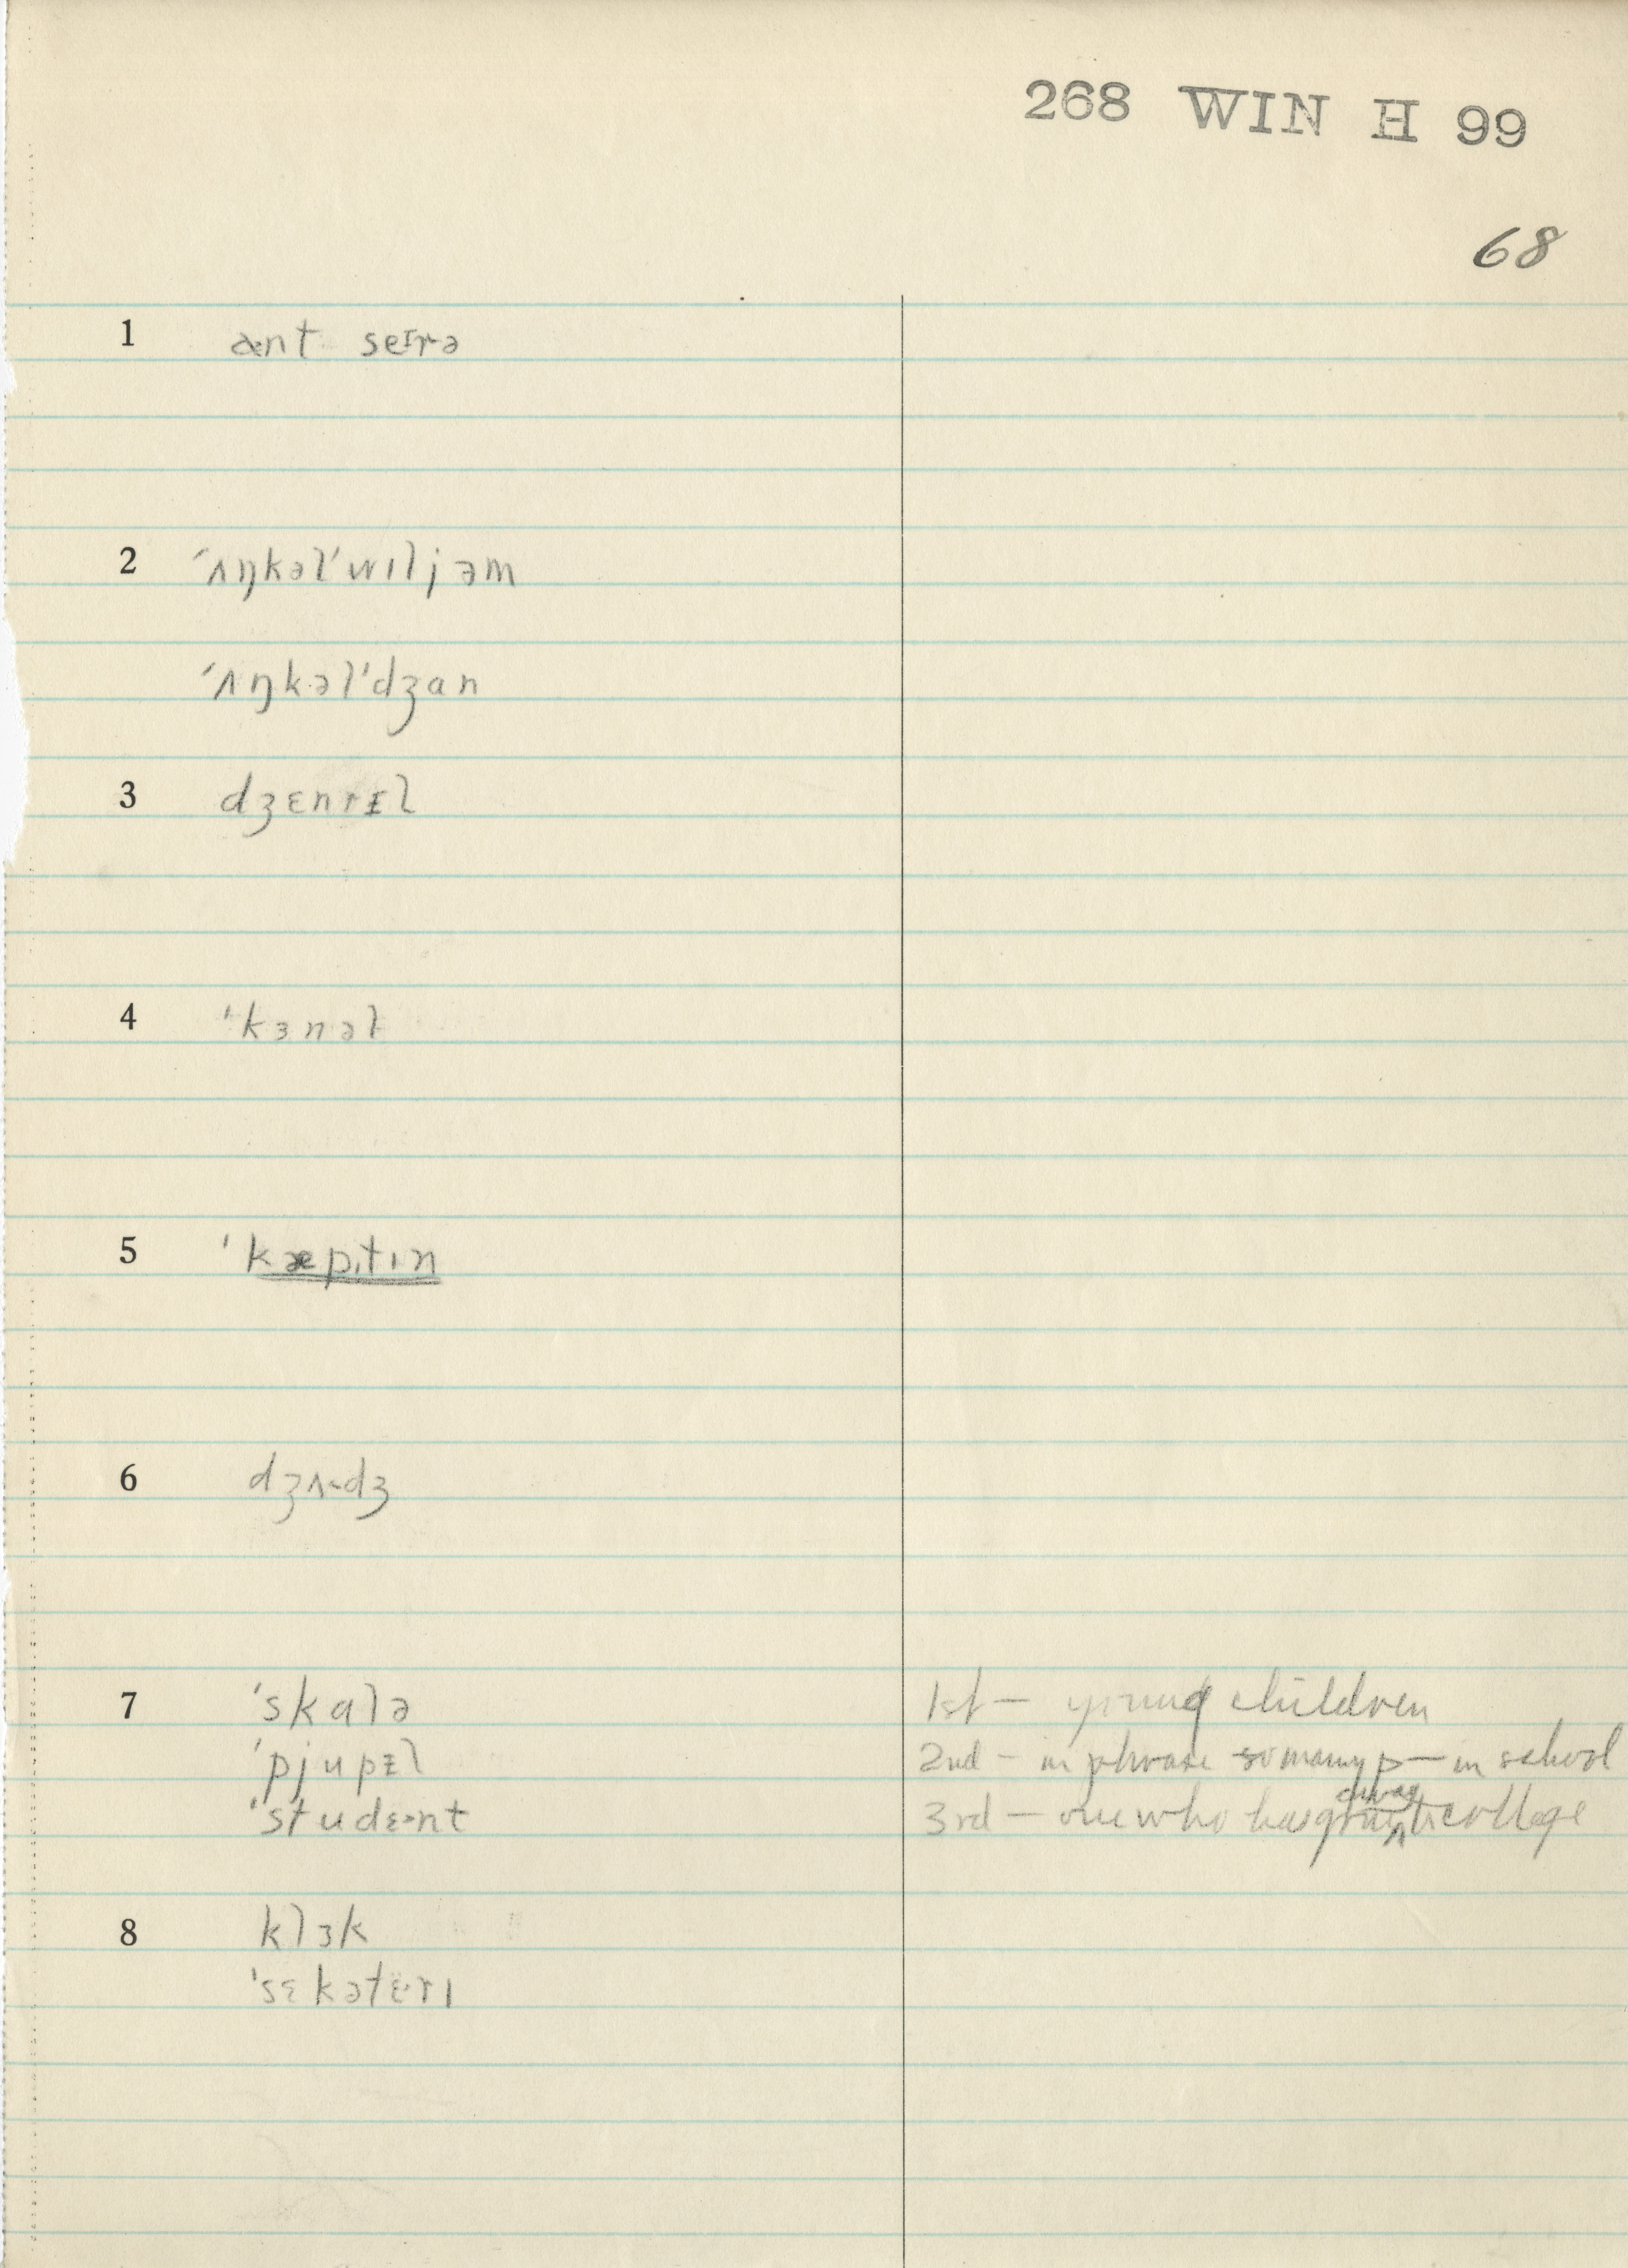 268 WIN H 99
68
1 ænt seɪrə
2 ˈʌŋkəlˈwɪljəm
ˈʌŋkəlˈdʒan
3 dʒɛnrᵻl
4 ˈkɜnəl
5 ˈkæpˌtɪn
6 dʒʌdʒ
7 ˈskalə 1st — young children
ˈpjupᵻl 2nd — in phrase so many p— in school
ˈstudɛnt 3rd — one who has college
8 klɜk
ˈsɛkətɛrɪ